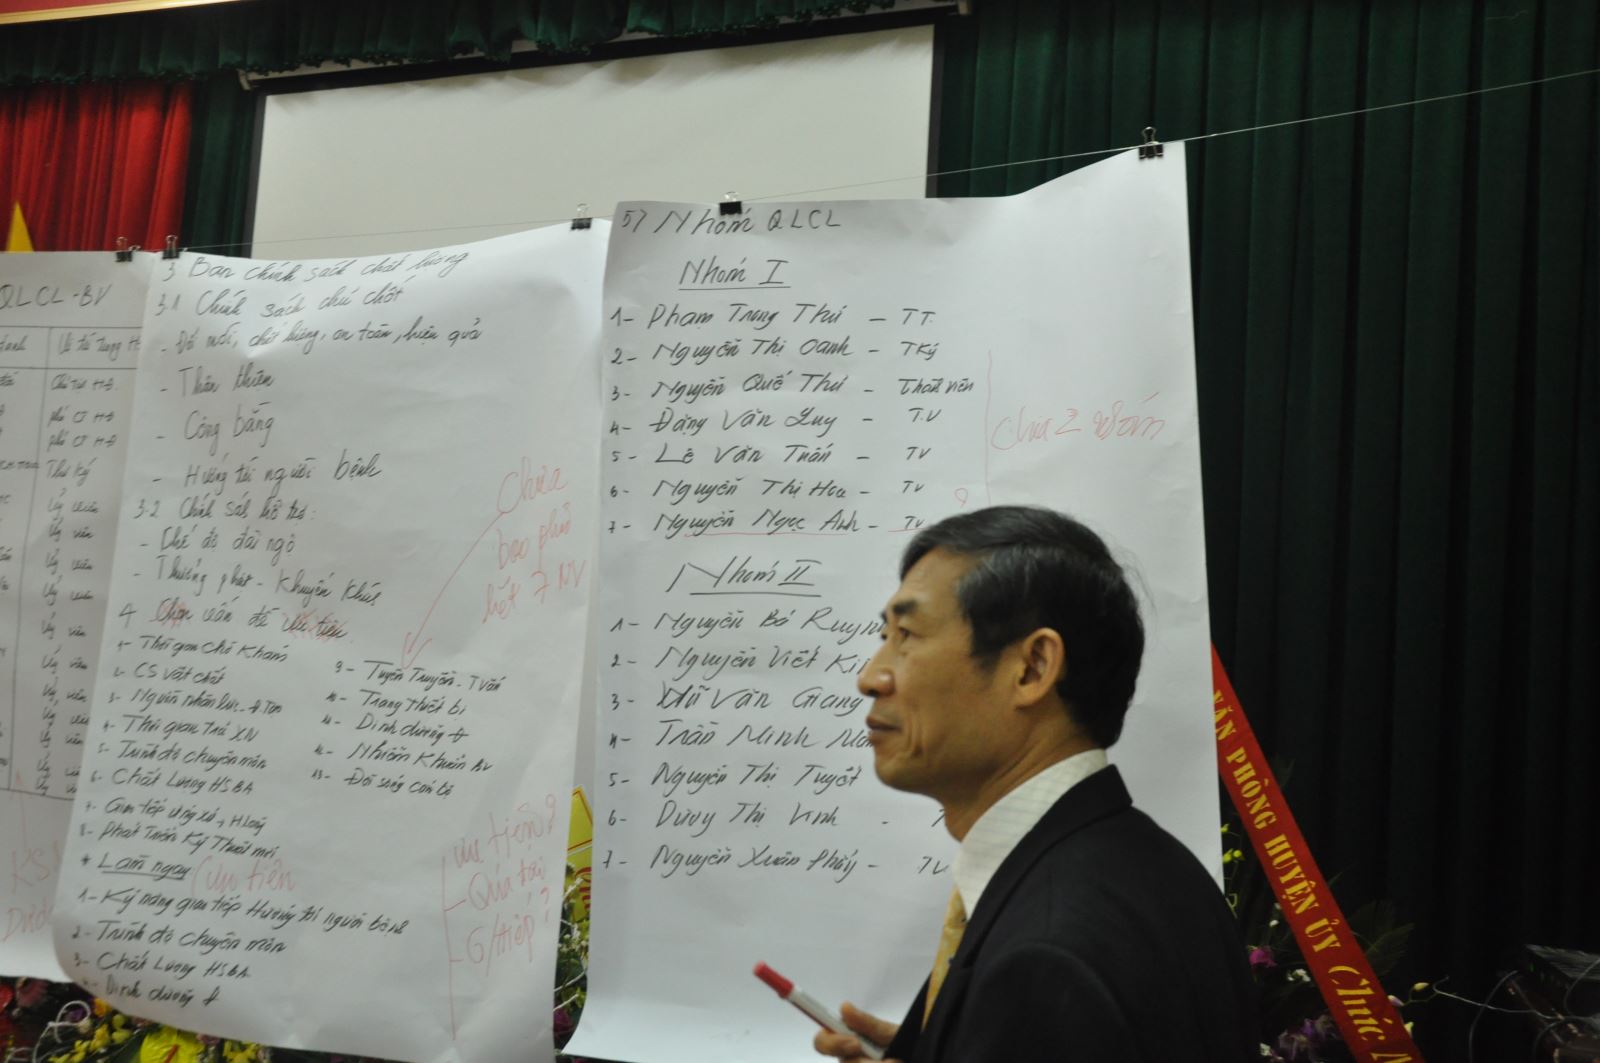 QLCL-BV
Chủ tịch HĐ
phó CT HĐ
phó CT HĐ
Thư Ký
Uỷ viên
Uỷ viên
Uỷ viên
Uỷ viên
3 Ban chính sách chất lượng
3.1 Chính sách chủ chốt
- Đổi mới, chất lượng, an toàn, hiệu quả
- Thân thiện
- Công bằng
- Hướng tới người bệnh
3.2 Chính sách hỗ trợ:
- Chế độ đãi ngộ
- Thưởng phạt - Khuyến Khích
4 Chọn vấn đề ưu tiên
1- Thời gian chờ Khám
2- CS vật chất
3- Nguồn nhân lực
4- Thời gian trả XN
5- Trình độ chuyên môn
6- Chất Lượng HSBA
7- Giao tiếp ứng xử
8- Phát Triển Kỹ Thuật mới
9- Tuyên Truyền - T vấn
10- Trang thiết bị
11- Dinh dưỡng
12- Nhiễm Khuẩn BV
13- Đời sống cán bộ
* Làm ngay (ưu tiên
1- Kỹ năng giao tiếp Hướng tới người bệnh
2- Trình độ chuyên môn
3- Chất Lượng HSBA
- Dinh dưỡng
Chưa
bao phủ
hết 7 NV
ưu tiên?
- Quá tải
- G/tiếp?
5/ Nhóm QLCL
Nhóm I
1- Phạm Trung Thứ - TT.
2- Nguyễn Thị Oanh - TKý
3- Nguyễn Quế Thư - Thành viên
4- Đặng Văn Luy - T.V
5- Lê Văn Tuấn - TV
6- Nguyễn Thị Hoa - TV
7- Nguyễn Ngọc Anh - TV
Chia 2 nhóm
Nhóm II
1- Nguyễn Bá
2- Nguyễn Viết
3- Văn Giang
4- Trần Minh
5- Nguyễn Thị Tuyết
6- Thị Vinh
7- Nguyễn Xuân - TV
VĂN PHÒNG HUYỆN ỦY Chúc